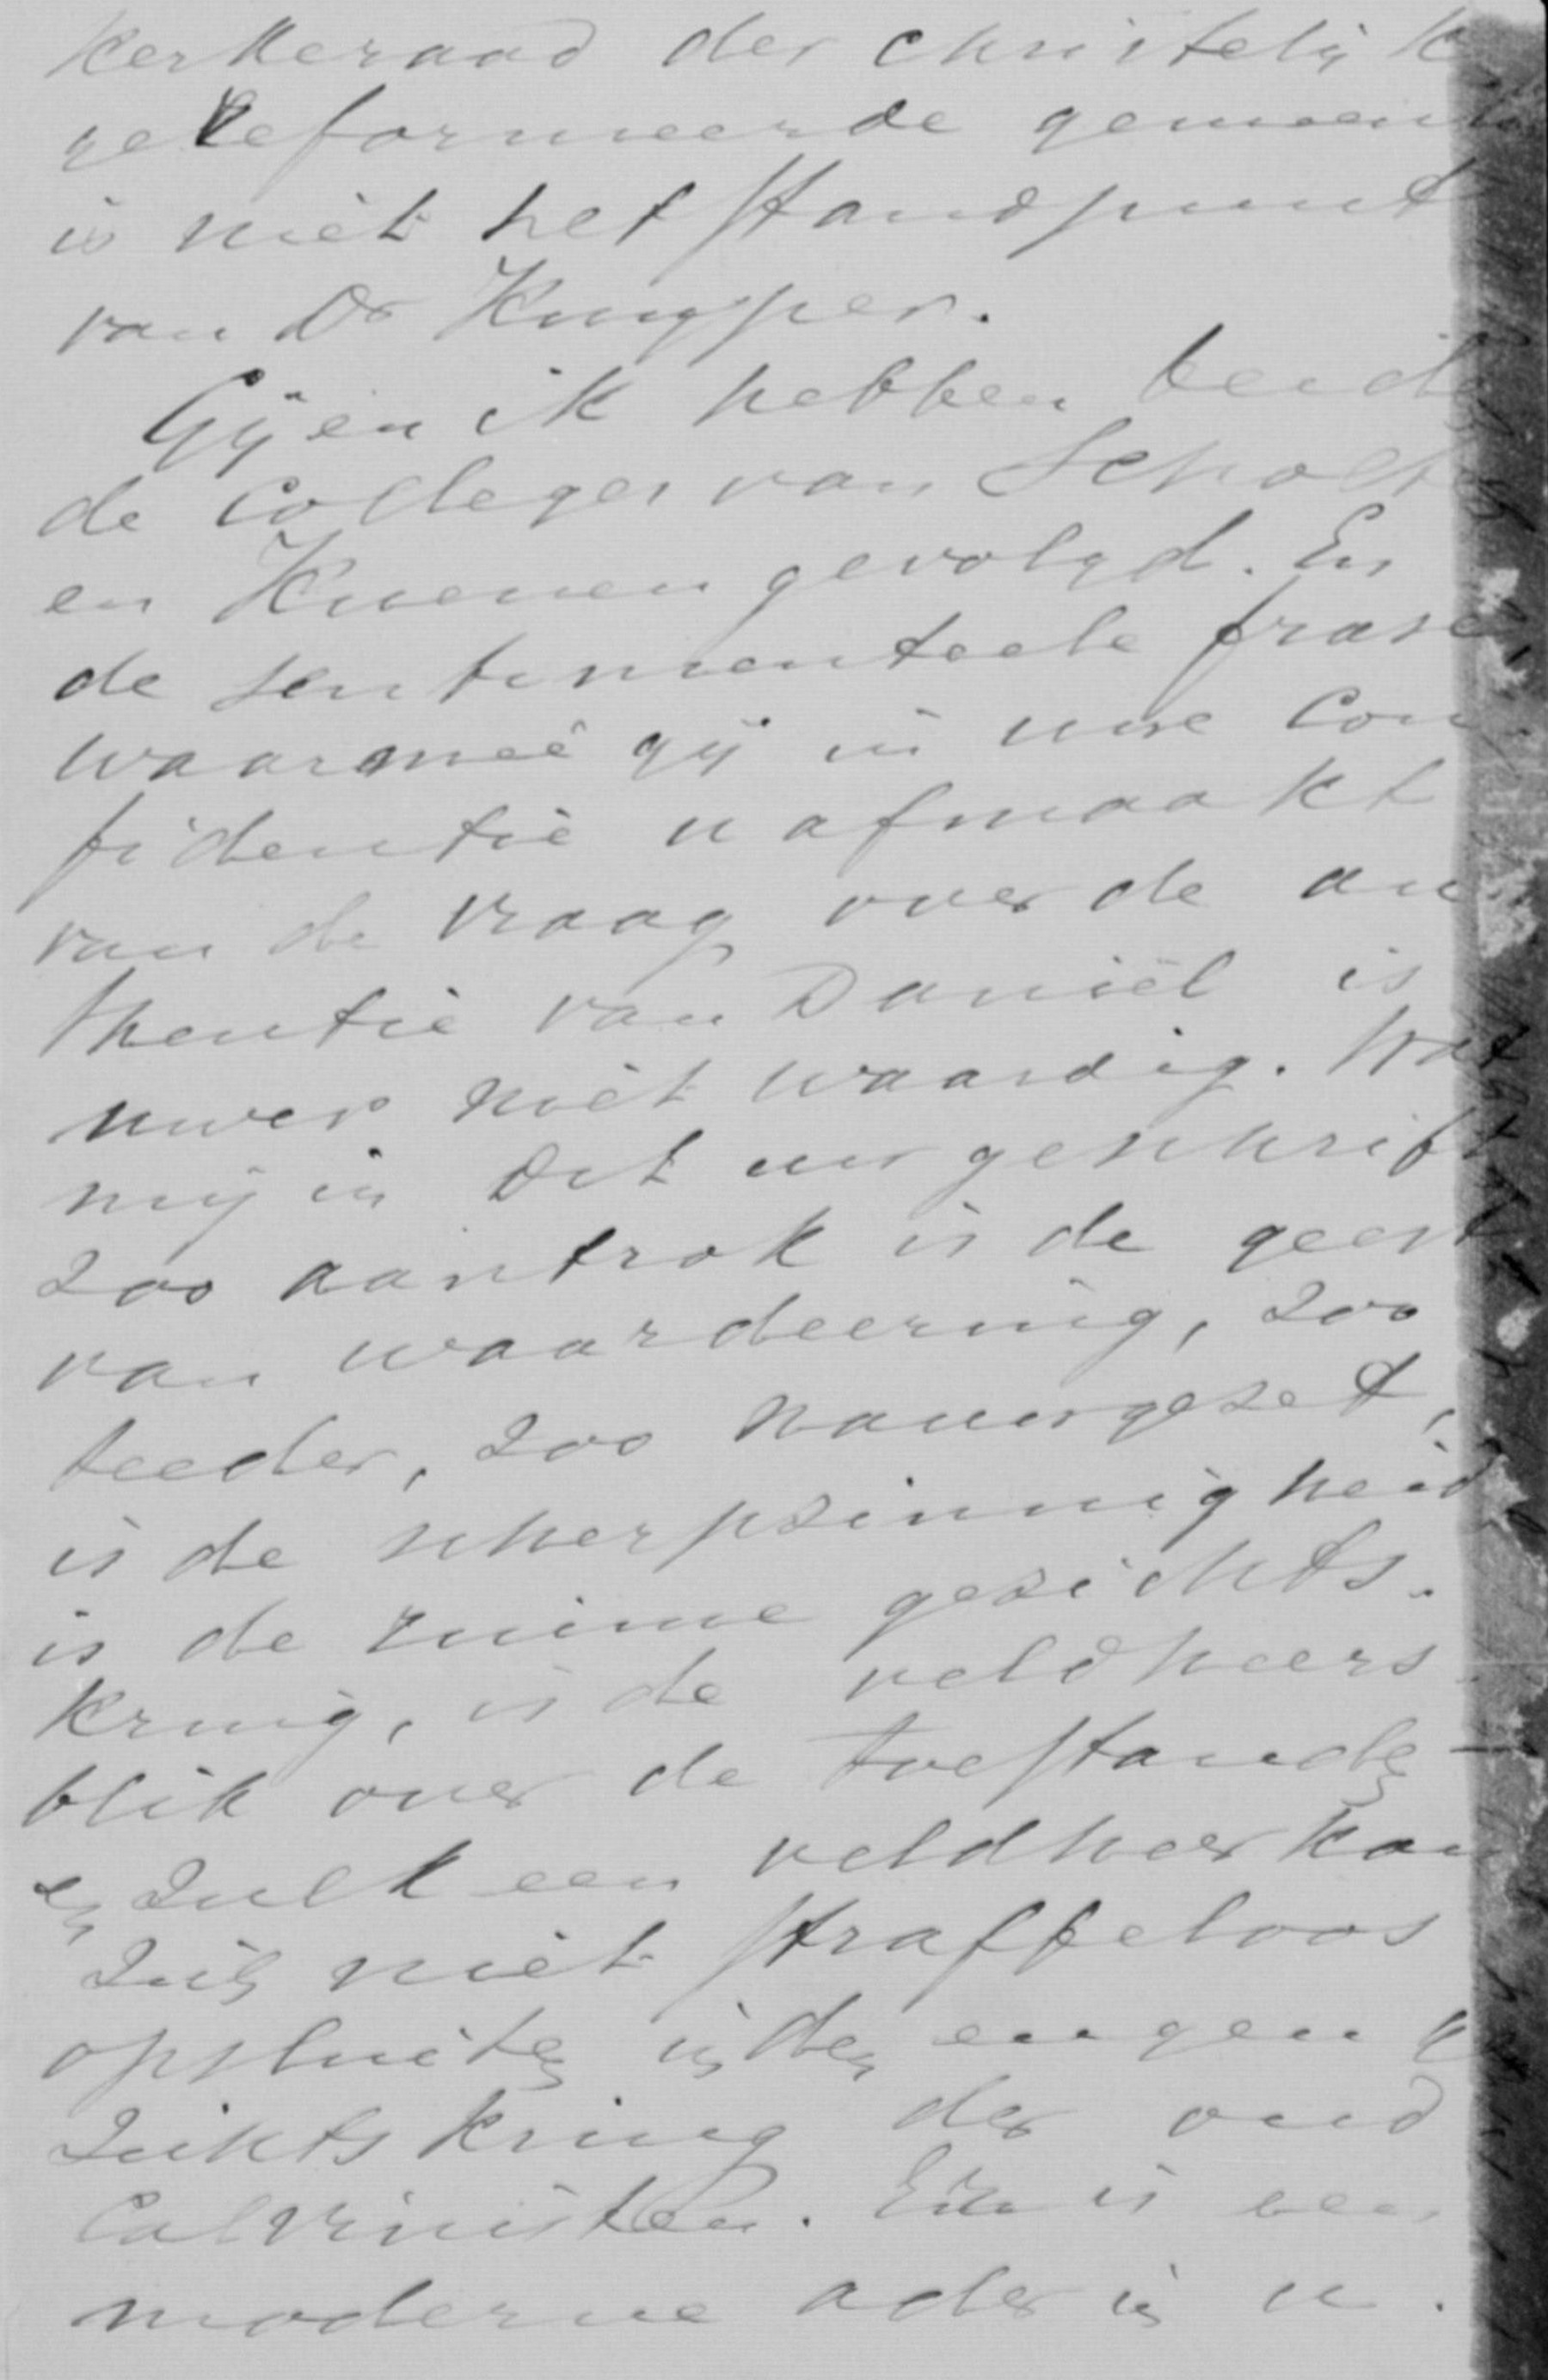 kerkeraad der christelijk
gereformeerde gemeente
is niet het standpunt
van Dr Kuyper.
Gij en ik hebben beide
de colleges van Scholten
en Kuenen gevolgd. En
de sentimenteele frase
waarmeê gij in uwe con
fidentie u afmaakt
van de vraag over de au
thentie van Daniël is
uwer niet waardig. Wat
mij in dit uw geschrift
zoo aantrok is de geest
van waardeering, zoo
teeder, zoo nauwgezet,
is de scherpzinnigheid
is de ruime gezichts-
kring, is de veldheers
blik over de toestanden -
en zulk een veldheer kan
zich niet straffeloos
opsluiten in den engen ge
zichtskring der oud
Calvinisten. Er is een
moderne ader in u.